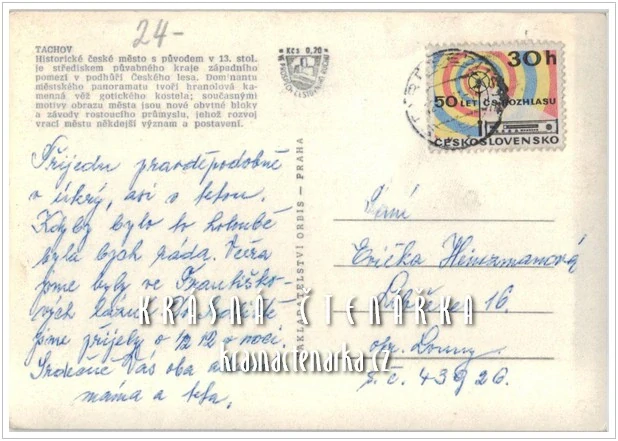 24-
TACHOV
Historické české město s původem v 13. stol.
je střediskem půvabného kraje západního
pomezí v podhůří Českého lesa. Dominantu
městského panoramatu tvoří hranolová ka-
menná věž gotického kostela; současnými
motivy obrazu města jsou nové obytné bloky
a závody rostoucího průmyslu, jehož rozvoj
vrací městu někdejší význam a postavení.
Kčs 0,70
30 h
50 LET ČS. ROZHLASU
ČESKOSLOVENSKO
Přijedu pravděpodobně
v úterý, asi s tetou.
Kdyby bylo to
byla bych ráda. Včera
jsme byly ve Františko-
vých
jsme přijely o 1/2 12 v noci.
Srdečně Vás oba
máma a teta.
NAKLADATELSTVÍ ORBIS – PRAHA
KRÁSNÁ ČTENÁŘKA
krasnactenarka.cz
Evička
16
okr. Louny
43926.